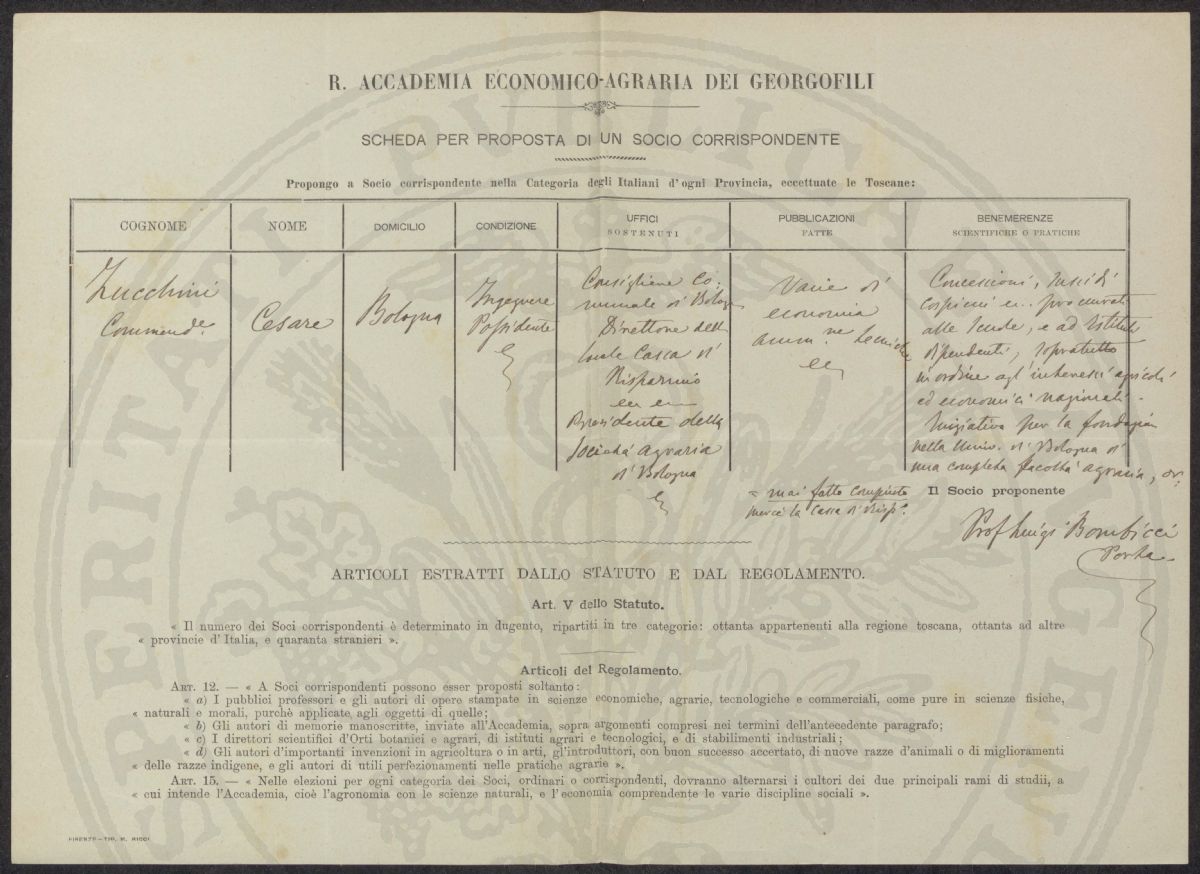 R. ACCADEMIA ECONOMICO-AGRARIA DEI GEORGOFILI
SCHEDA PER PROPOSTA DI UN SOCIO CORRISPONDENTE
Propongo a Socio corrispondente nella Categoria degli Italiani d'ogni Provincia, eccettuate le Toscane:
COGNOME
NOME
DOMICILIO
CONDIZIONE
UFFICI
SOSTENUTI
PUBBLICAZIONI
FATTE
BENEMERENZE
SCIENTIFICHE O PRATICHE
Zucchini
Commend.e
Cesare
Bologna
Ingegnere
Possidente
Consigliere Co:
munale di Bologna
Direttore dell
locale Cassa di
Risparmio
Presidente della
Società Agraria
di Bologna
Varie di
economia
amm.ne tecniche
Concessioni, sussidi
cospicui procurati
alle scuole, e ad Istituti
dipendenti, sopratutto
in ordine agl'interessi agricoli
ed economici nazionali.
Iniziativa per la fondazion
nella Univ. di Bologna di
una completa facoltà agraria, or:
= mai fatto compiuto
mercè la Cassa di Risp.
Il Socio proponente
Prof Luigi Bombicci
Porta
ARTICOLI ESTRATTI DALLO STATUTO E DAL REGOLAMENTO.
Art. V dello Statuto.
« Il numero dei Soci corrispondenti è determinato in dugento, ripartiti in tre categorie: ottanta appartenenti alla regione toscana, ottanta ad altre
« provincie d'Italia, e quaranta stranieri ».
Articoli del Regolamento.
ART. 12. — « A Soci corrispondenti possono esser proposti soltanto:
« a) I pubblici professori e gli autori di opere stampate in scienze economiche, agrarie, tecnologiche e commerciali, come pure in scienze fisiche,
« naturali e morali, purchè applicate agli oggetti di quelle;
« b) Gli autori di memorie manoscritte, inviate all'Accademia, sopra argomenti compresi nei termini dell'antecedente paragrafo;
« c) I direttori scientifici d'Orti botanici e agrari, di istituti agrari e tecnologici, e di stabilimenti industriali;
« d) Gli autori d'importanti invenzioni in agricoltura o in arti, gl'introduttori, con buon successo accertato, di nuove razze d'animali o di miglioramenti
« delle razze indigene, e gli autori di utili perfezionamenti nelle pratiche agrarie ».
ART. 15. — « Nelle elezioni per ogni categoria dei Soci, ordinari o corrispondenti, dovranno alternarsi i cultori dei due principali rami di studii, a
« cui intende l'Accademia, cioè l'agronomia con le scienze naturali, e l'economia comprendente le varie discipline sociali ».
FIRENZE – TIP. M. RICCI